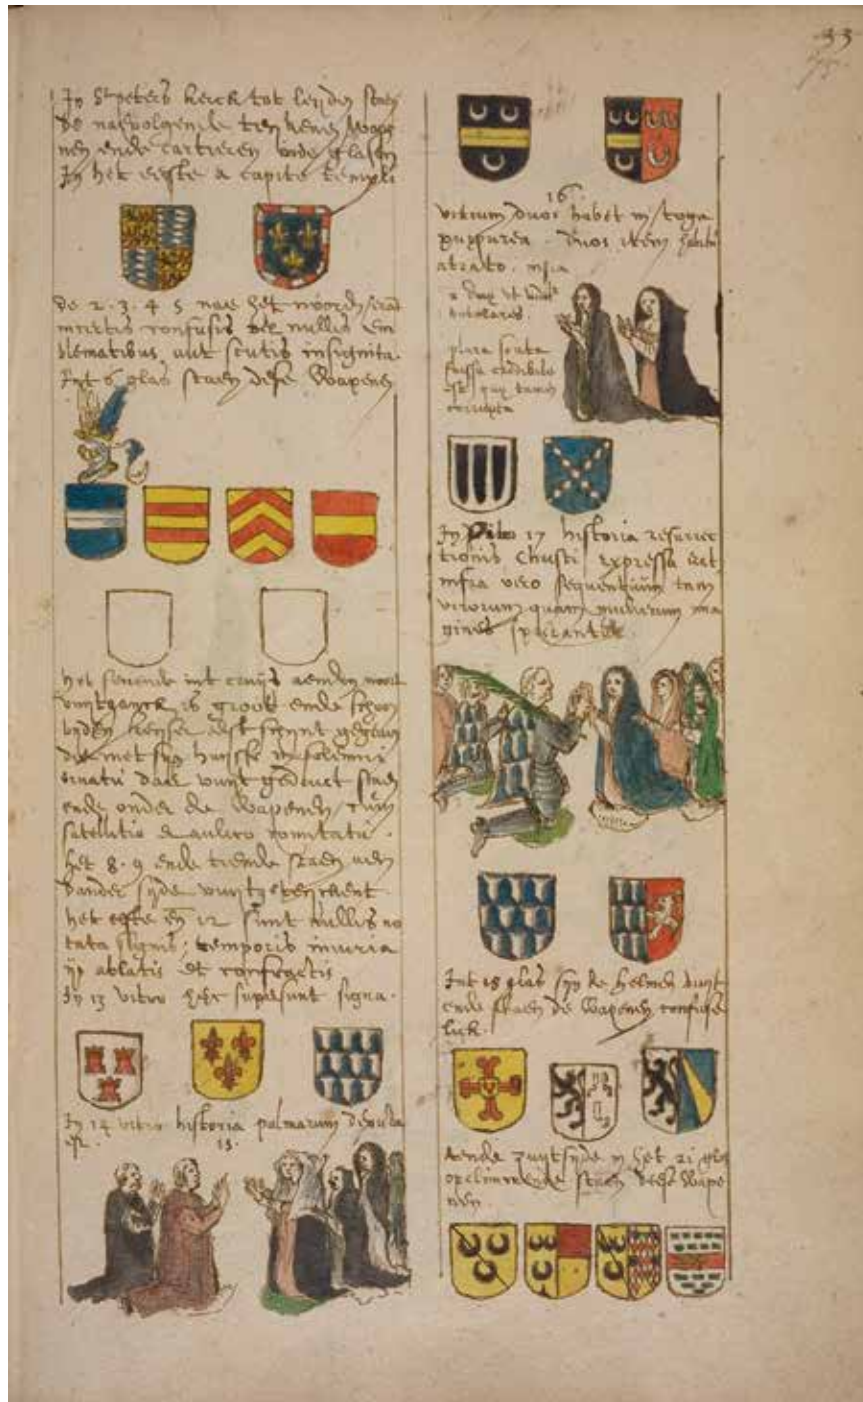 33
In St peters kerck tot leyden staen
de naevolgende tien heren wape
nen ende cartieren inde glasen
In het eerste a capite templi
de 2 . 3 . 4 5 nae het noorden
confusis vel nullis em
blematibus aut scutis insignita.
Int 6 glas staen dese wapenen
het sevende int cruys aenden noort
wuytganck is groot ende schon
keyser
die met syn huysse in solemni
ornatu daer wuyt gedruct staen
ende onder de wapenen cum
satellitio et aulico comitatu .
het 8 . 9 ende tiende staen aen
dander syde wuytgeteyckent .
het elfte en 12 sunt nullis no
tata signis ; temporis iniuria
iis ablatis et confractis
In 13 vitro hec supersunt signa .
In 14 vitro historia palmarum depicta
est . 15 .
16 .
vitrum duos habet in toga
purpurea . duos item habitu
atrato . infra
2 ut
titulares .
plura scuta
fuisse credibile
est quae tamen
corrupta
In 17 historia resurrec
tionis Christi expressa est
infra vero sequentium tam
virorum quam mulierum ima
gines spectantur .
Int 18 glas syn de helmen wuyt
ende staen de wapenen confuse
lick .
Aende zuytsyde in het 21 glas
opclimmende staen dese wape
nen .